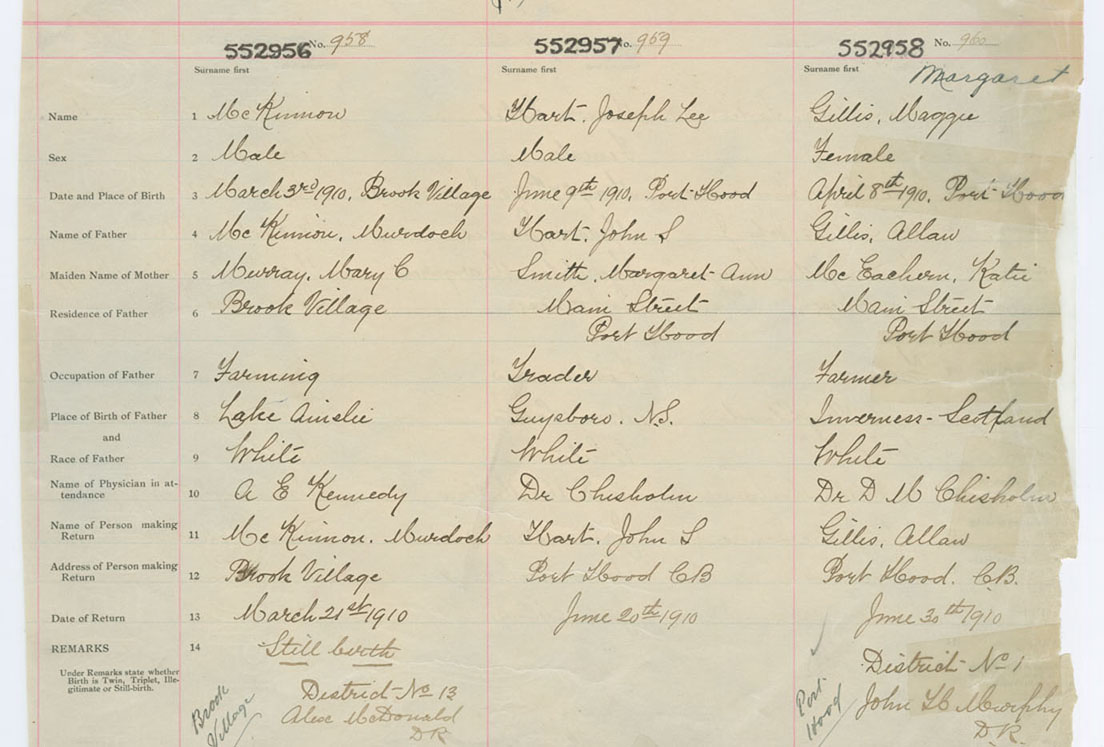 552956 No. 958 552957 No. 959 552958 No. 960
Surname first Surname first Surname first Margaret
Name 1 McKinnon Hart, Joseph Lee Gillis, Maggie
Sex 2 Male Male Female
Date and Place of Birth 3 March 3rd 1910, Brook Village June 9th 1910, Port Hood April 8th 1910, Port Hood
Name of Father 4 McKinnon, Murdoch Hart, John S Gillis, Allan
Maiden Name of Mother 5 Murray, Mary C Smith, Margaret Ann McEachern, Katie
Residence of Father 6 Brook Village Main Street Main Street
Port Hood Port Hood
Occupation of Father 7 Farming Trader Farmer
Place of Birth of Father 8 Lake Ainslie Guysboro. N.S. Inverness - Scotland
and
Race of Father 9 White White White
Name of Physician in at-
tendance 10 A E Kennedy Dr Chisholm Dr D M Chisholm
Name of Person making
Return 11 McKinnon, Murdoch Hart, John S Gillis, Allan
Address of Person making
Return 12 Brook Village Port Hood CB Port Hood. C.B.
Date of Return 13 March 21st 1910 June 20th 1910 June 30th 1910
REMARKS 14 Still birth
Under Remarks state whether
Birth is Twin, Triplet, Ille-
gitimate or Still-birth.
District No 13 District No 1
Alex McDonald John H Murphy
DR DR
Brook
Village
Port
Hood